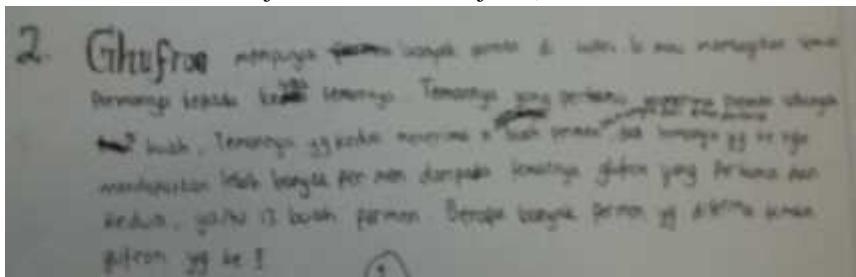 2. Ghufron mempunyai banyak permen di mau membagikan semua
permennya kepada temannya. Temannya yang pertama menerima permen sebanyak
buah, Temannya yg kedua menerima buah permen dan temannya yg ke tiga
mendapatkan lebih banyak permen daripada temannya gufron yang Pertama dan
kedua, yaitu 13 buah permen. Berapa banyak permen yg diterima teman
gufron yg ke